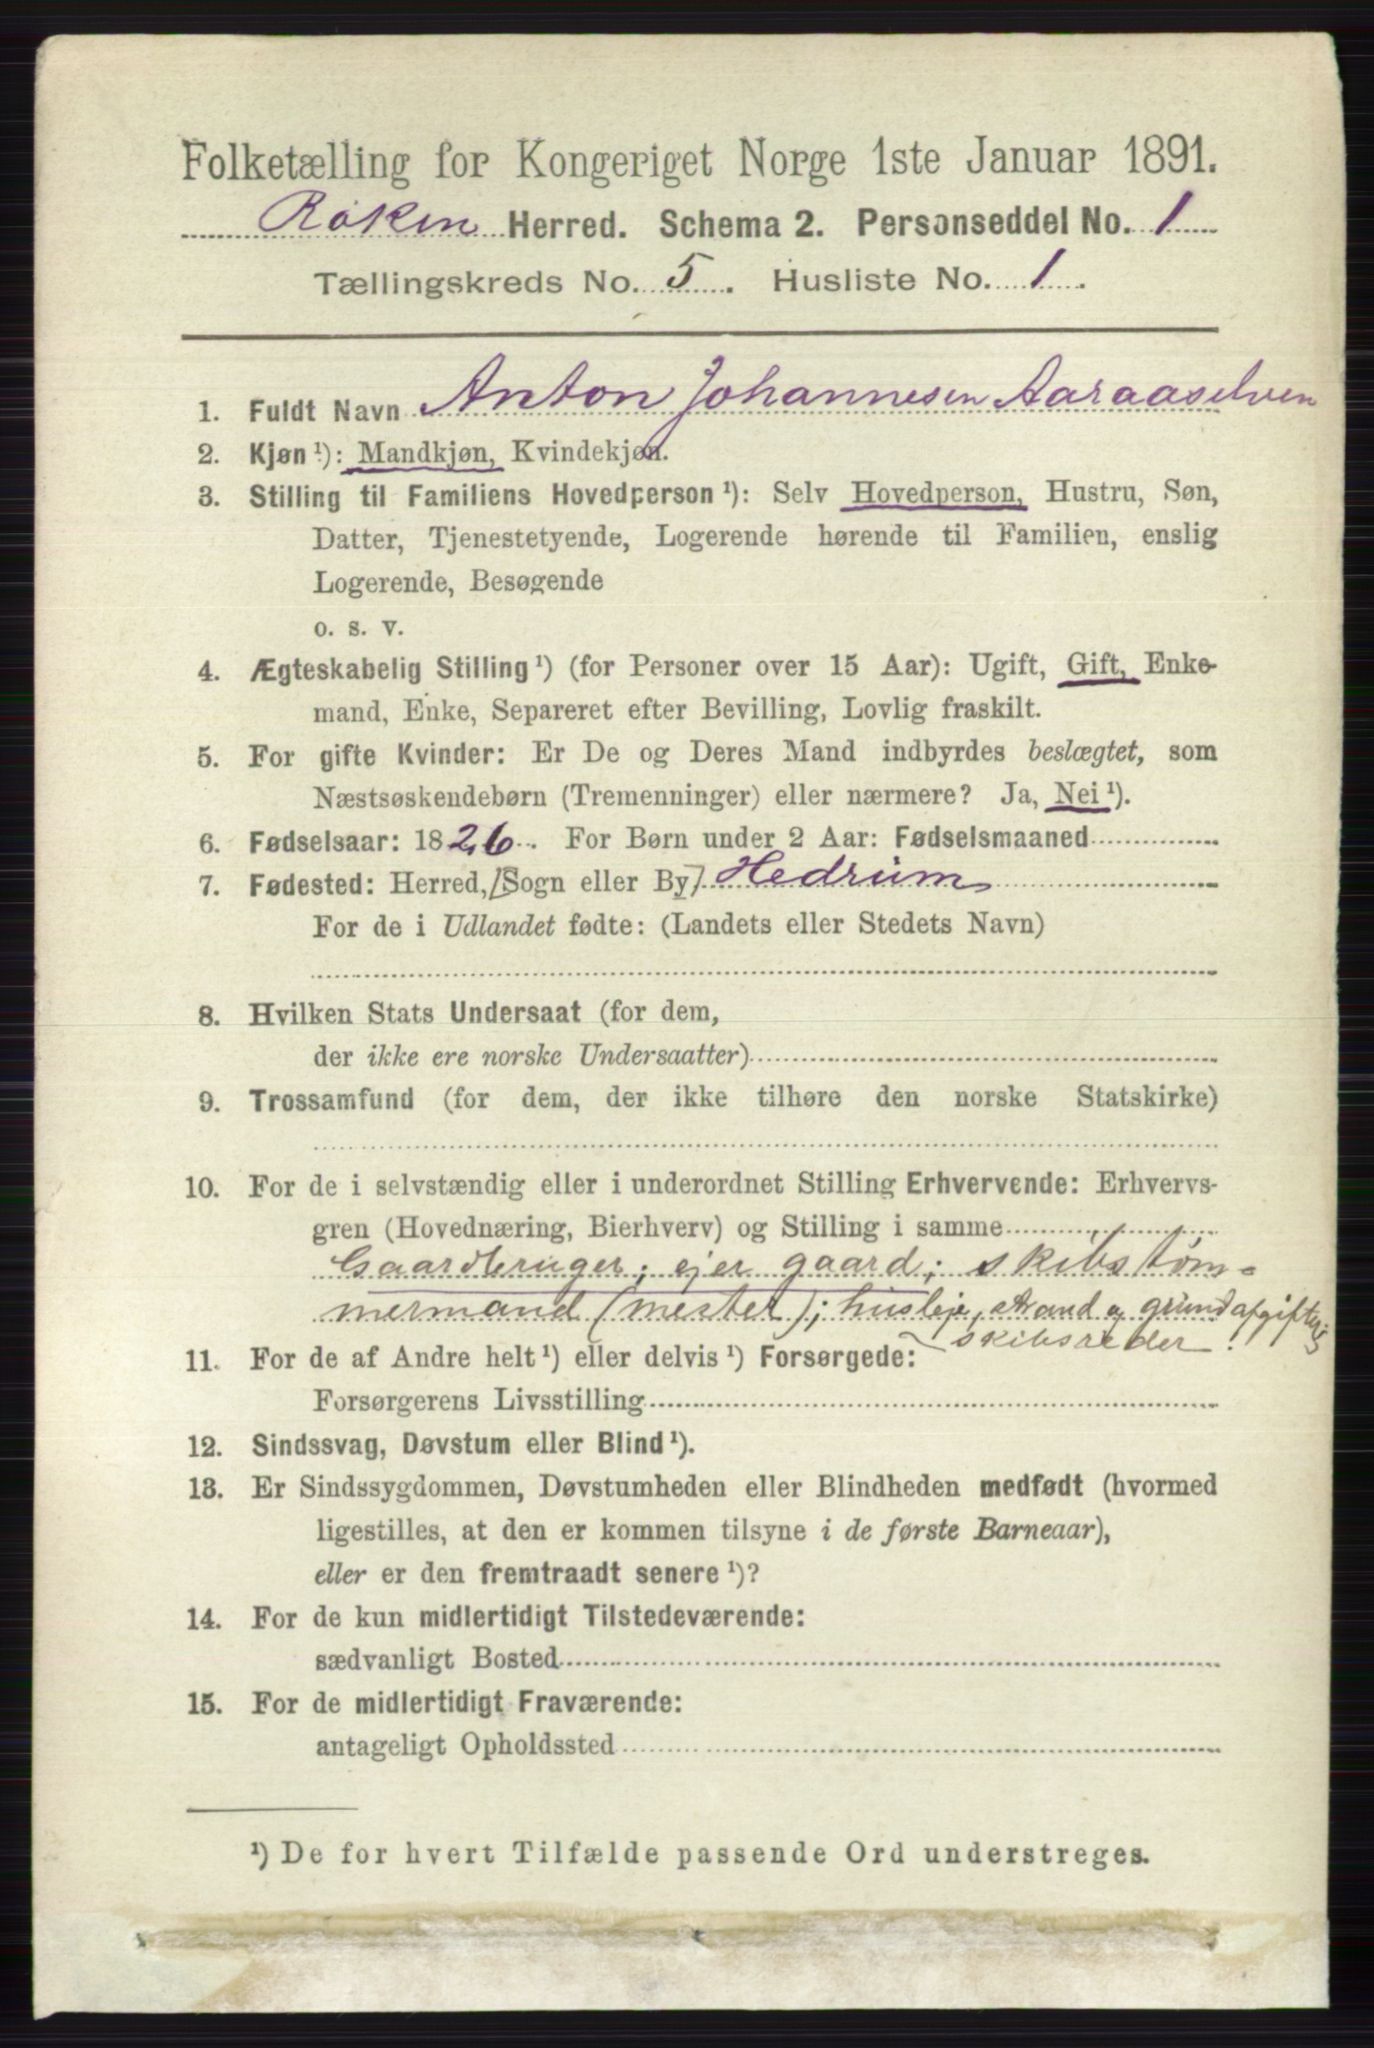 Folketælling for Kongeriget Norge 1ste Januar 1891.
Røken Herred. Schema 2. Personseddel No. 1
Tællingskreds No. 5. Husliste No. 1.
1. Fuldt Navn Anton Johannesen Aaraaselven
2. Kjøn ¹): Mandkjøn, Kvindekjøn.
3. Stilling til Familiens Hovedperson ¹): Selv Hovedperson, Hustru, Søn,
Datter, Tjenestetyende, Logerende hørende til Familien, enslig
Logerende, Besøgende
o. s. v.
4. Ægteskabelig Stilling ¹) (for Personer over 15 Aar): Ugift, Gift, Enke-
mand, Enke, Separeret efter Bevilling, Lovlig fraskilt.
5. For gifte Kvinder: Er De og Deres Mand indbyrdes beslægtet, som
Næstsøskendebørn (Tremenninger) eller nærmere? Ja, Nei ¹).
6. Fødselsaar: 1826. For Børn under 2 Aar: Fødselsmaaned
7. Fødested: Herred, [Sogn eller By] Hedrum
For de i Udlandet fødte: (Landets eller Stedets Navn)
8. Hvilken Stats Undersaat (for dem,
der ikke ere norske Undersaatter)
9. Trossamfund (for dem, der ikke tilhøre den norske Statskirke)
10. For de i selvstændig eller i underordnet Stilling Erhvervende: Erhvervs-
gren (Hovednæring, Bierhverv) og Stilling i samme
Gaardbruger; ejer gaard; skibstøm-
mermand (mester); husleje, strand og grundafgifter;
skibsreder.
11. For de af Andre helt ¹) eller delvis ¹) Forsørgede:
Forsørgerens Livsstilling
12. Sindssvag, Døvstum eller Blind ¹).
13. Er Sindssygdommen, Døvstumheden eller Blindheden medfødt (hvormed
ligestilles, at den er kommen tilsyne i de første Barneaar),
eller er den fremtraadt senere ¹)?
14. For de kun midlertidigt Tilstedeværende:
sædvanligt Bosted
15. For de midlertidigt Fraværende:
antageligt Opholdssted
¹) De for hvert Tilfælde passende Ord understreges.